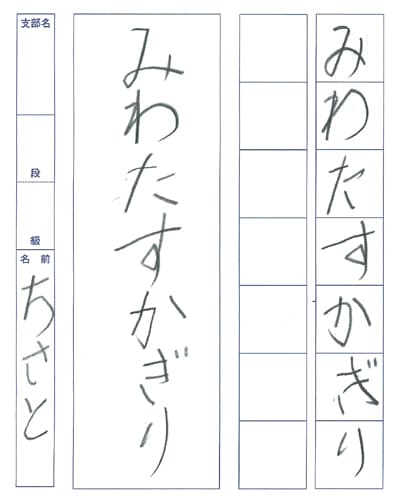 みわたすかぎり
みわたすかぎり
支部名
段
級
名前
ちさと